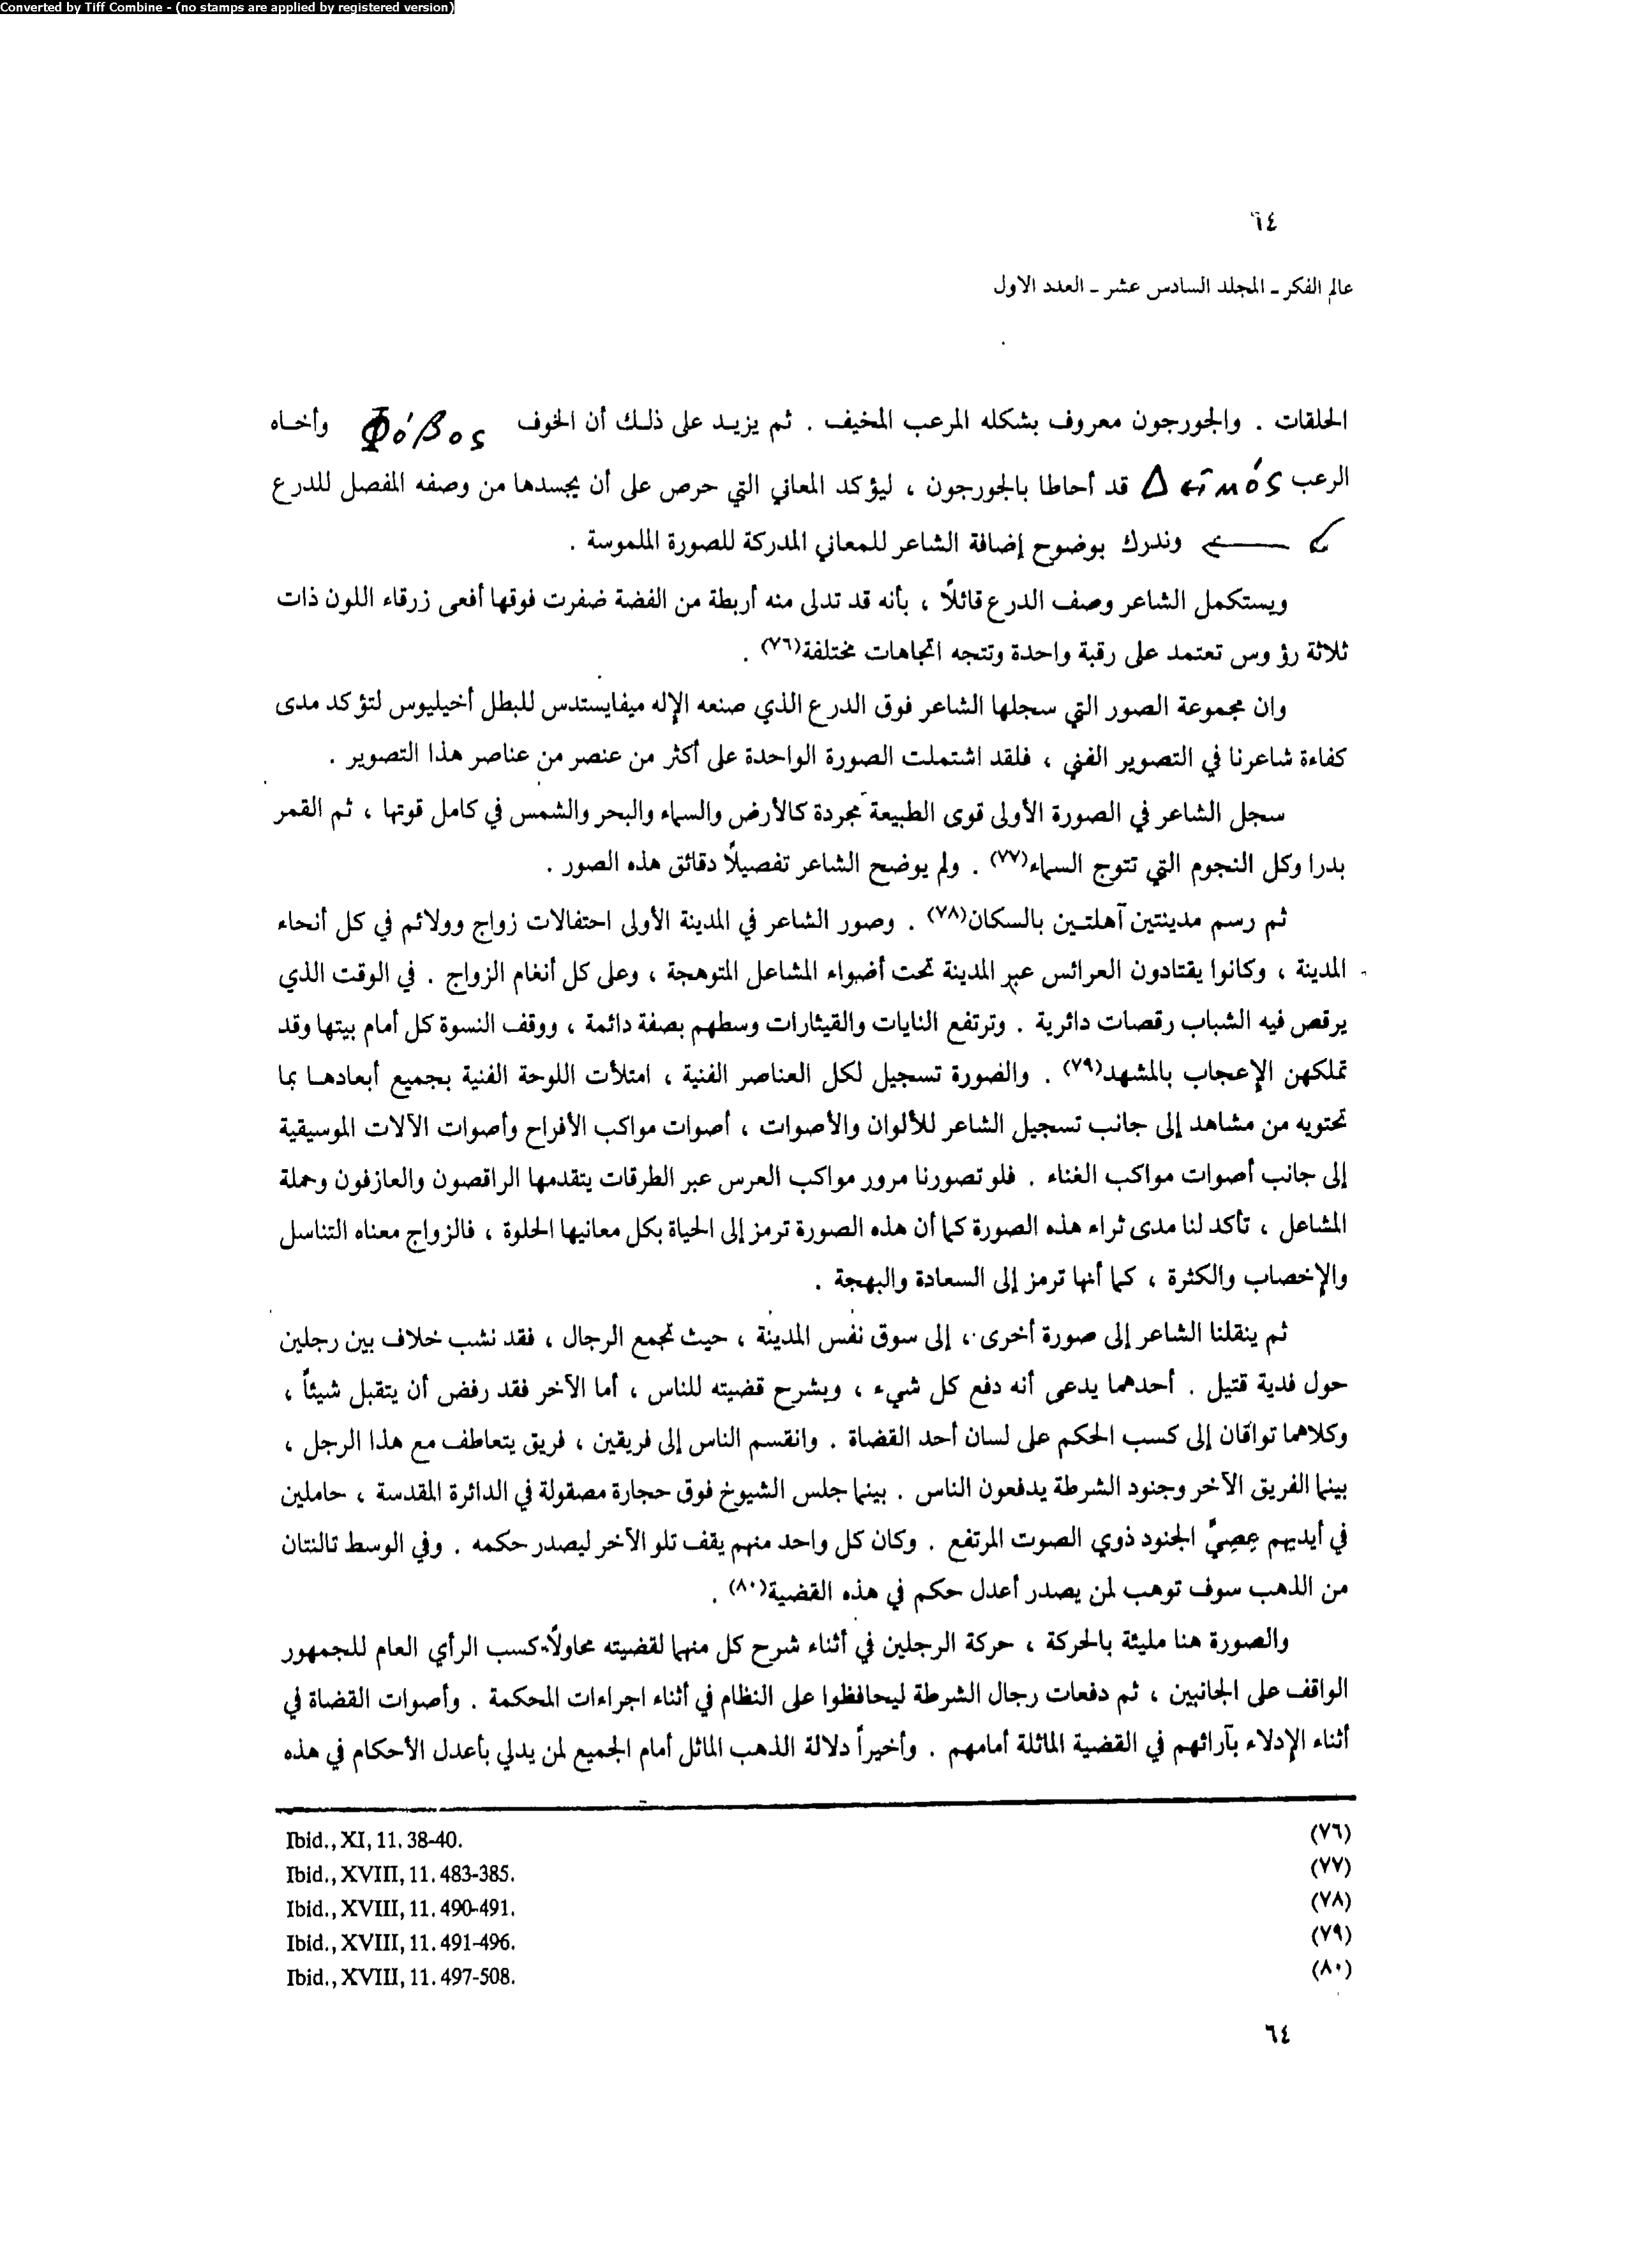 Converted by Tiff Combine - (no stamps are applied by registered version)
٦٤
عالم الفكر ـ المجلد السادس عشر ـ العدد الاول
الحلقات . والجورجون معروف بشكله المرعب المخيف . ثم يزيد على ذلك أن الخوف Φόβος وأخاه
الرعب Δεῖμός قد أحاطا بالجورجون ، ليؤكد المعاني التي حرص على أن يجسدها من وصفه المفصل للدرع
وندرك بوضوح إضافة الشاعر للمعاني المدركة للصورة الملموسة .
ويستكمل الشاعر وصف الدرع قائلاً ، بأنه قد تدلى منه أربطة من الفضة ضفرت فوقها أفعى زرقاء اللون ذات
ثلاثة رؤ وس تعتمد على رقبة واحدة وتتجه اتجاهات مختلفة(٧٦) .
وان مجموعة الصور التي سجلها الشاعر فوق الدرع الذي صنعه الإله ميفايستدس للبطل أخيليوس لتؤكد مدى
كفاءة شاعرنا في التصوير الفني ، فلقد اشتملت الصورة الواحدة على أكثر من عنصر من عناصر هذا التصوير .
سجل الشاعر في الصورة الأولى قوى الطبيعة مجردة كالأرض والسماء والبحر والشمس في كامل قوتها ، ثم القمر
بدرا وكل النجوم التي تتوج السماء(٧٧) . ولم يوضح الشاعر تفصيلاً دقائق هذه الصور .
ثم رسم مدينتين آهلتين بالسكان(٧٨) . وصور الشاعر في المدينة الأولى احتفالات زواج وولائم في كل أنحاء
المدينة ، وكانوا يقتادون العرائس عبر المدينة تحت أضواء المشاعل المتوهجة ، وعلى كل أنغام الزواج . في الوقت الذي
يرقص فيه الشباب رقصات دائرية . وترتفع النايات والقيثارات وسطهم بصفة دائمة ، ووقف النسوة كل أمام بيتها وقد
تملكهن الإعجاب بالمشهد(٧٩) . والصورة تسجيل لكل العناصر الفنية ، امتلأت اللوحة الفنية بجميع أبعادها بما
تحتويه من مشاهد إلى جانب تسجيل الشاعر للألوان والأصوات ، أصوات مواكب الأفراح وأصوات الآلات الموسيقية
إلى جانب أصوات مواكب الغناء . فلو تصورنا مرور مواكب العرس عبر الطرقات يتقدمها الراقصون والعازفون وحملة
المشاعل ، تأكد لنا مدى ثراء هذه الصورة كما أن هذه الصورة ترمز إلى الحياة بكل معانيها الحلوة ، فالزواج معناه التناسل
والإخصاب والكثرة ، كما أنها ترمز إلى السعادة والبهجة .
ثم ينقلنا الشاعر إلى صورة أخرى ، إلى سوق نفس المدينة ، حيث تجمع الرجال ، فقد نشب خلاف بين رجلين
حول فدية قتيل . أحدهما يدعى أنه دفع كل شيء ، ويشرح قضيته للناس ، أما الآخر فقد رفض أن يتقبل شيئاً ،
وكلاهما تواقان إلى كسب الحكم على لسان أحد القضاة . وانقسم الناس إلى فريقين ، فريق يتعاطف مع هذا الرجل ،
بينما الفريق الآخر وجنود الشرطة يدفعون الناس . بينما جلس الشيوخ فوق حجارة مصقولة في الدائرة المقدسة ، حاملين
في أيديهم عِصِيَّ الجنود ذوي الصوت المرتفع . وكان كل واحد منهم يقف تلو الآخر ليصدر حكمه . وفي الوسط تالنتان
من الذهب سوف توهب لمن يصدر أعدل حكم في هذه القضية(٨٠) .
والصورة هنا مليئة بالحركة ، حركة الرجلين في أثناء شرح كل منهما لقضيته محاولاً كسب الرأي العام للجمهور
الواقف على الجانبين ، ثم دفعات رجال الشرطة ليحافظوا على النظام في أثناء اجراءات المحكمة . وأصوات القضاة في
أثناء الإدلاء بآرائهم في القضية الماثلة أمامهم . وأخيراً دلالة الذهب الماثل أمام الجميع لمن يدلي بأعدل الأحكام في هذه
(٧٦) Ibid., XI, 11. 38-40.
(٧٧) Ibid., XVIII, 11. 483-385.
(٧٨) Ibid., XVIII, 11. 490-491.
(٧٩) Ibid., XVIII, 11. 491-496.
(٨٠) Ibid., XVIII, 11. 497-508.
٦٤